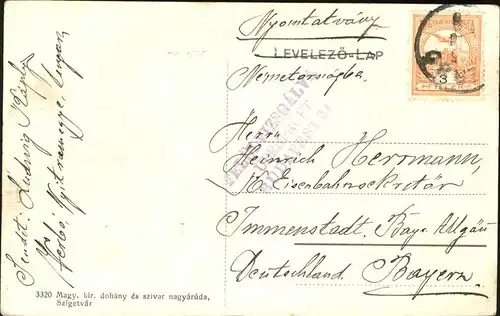 Nyomtatvány
LEVELEZŐ-LAP
Németországba.
Herrn
Heinrich Herrmann,
K. Eisenbahnsekretär
Immenstadt. Bayr. Allgäu
Deutschland. Bayern.
Sendet: Ludwig
Verbó, Nyitramegye, Ungarn
3320 Magy. kir. dohány és szivar nagyárúda,
Szigetvár